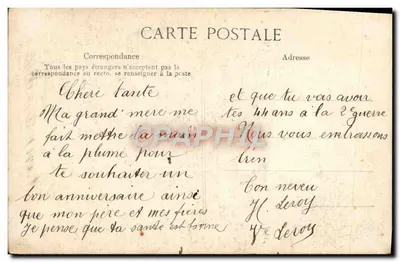 CARTE POSTALE
Correspondance
Adresse
Tous les pays étrangers n'acceptent pas la
correspondance au recto, se renseigner à la poste
Cherè tante
Ma grand' mère me
fait mettre la main
à la plume pour
te souhaiter un
bon anniversaire ainsi
que mon père et mes frères
Je pense que ta santé est bonne
et que tu vas avoir
tes 44 ans à la 2 guerre
Nous vous embrassons
bien
Ton neveu
H Leroy
Leroy
CPAPHIL.COM